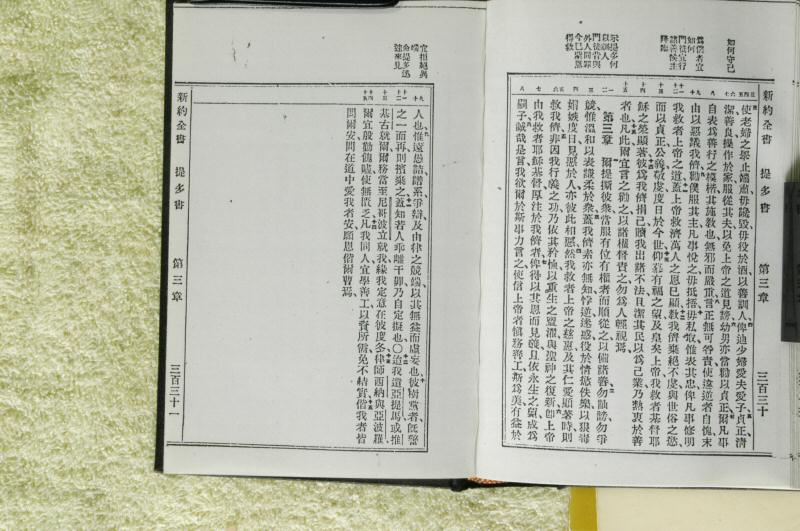 新約全書 提多書 第三章 三百三十
如何守已
爲僕者宜
如何
門徒宜行
諸善候主
降臨
示提多何
以訓人
門徒昔與
外人同罪
今已蒙恩
得救
使老婦之舉止端肅毋讒毀毋役於酒以善訓人俾迪少婦愛夫愛子貞正清
潔善良操作於家服從其夫以免上帝之道見謗幼男亦當勸以貞正爾凡事
自表爲善行之模楷其施敎也無邪而嚴重言正無可咎責使違逆者自愧末
由以惡議我儕勸僕服其主凡事悅之毋抵牾毋私取惟表其忠俾凡事修明
我救者上帝之道蓋上帝救濟萬人之恩已顯敎我儕棄絕不虔與世俗之慾
而以貞正公義敬虔度日於今世仰慕有福之望及皇矣上帝我救者基督耶
穌之榮顯著彼爲我儕捐己贖我出諸不法且潔其民以爲己業乃熱衷於善
者也凡此爾宜言之勸之以諸權督責之勿爲人輕視焉
第三章 爾提撕彼衆當服有位有權者而順從之以備諸善勿訕謗勿爭
競惟溫和以表謙柔於衆蓋我儕素亦無知悖逆迷惑役於情慾佚樂以狠毒
媢嫉度日見惡於人亦彼此相惡然我救者上帝之慈恩及其仁愛顯著時則
救我儕非因我行義之功乃依其矜恤以重生之盥濯與聖神之復新卽上帝
由我救者耶穌基督厚注於我儕者俾得以其恩而見義且依永生之望成爲
嗣子誠哉是言我欲爾於斯事力言之使信上帝者慎務善工斯爲美有益於
宜拒絕異
端
命提多迅
速來見
人也惟遠愚詰譜系爭辯及由律之競端以其無益而虛妄也彼樹黨者旣警
之一而再則擯棄之蓋知若人乖離干罪乃自定擬也〇造我遣亞提馬或推
基古就爾爾務當至尼哥波立就我緣我定意在彼度冬律師西納與亞波羅
爾宜殷勤餽贐使無匱乏凡我同人宜學善工以資所需免不結實偕我者皆
問爾安問在道中愛我者安願恩偕爾曹焉
新約全書 提多書 第三章 三百三十一